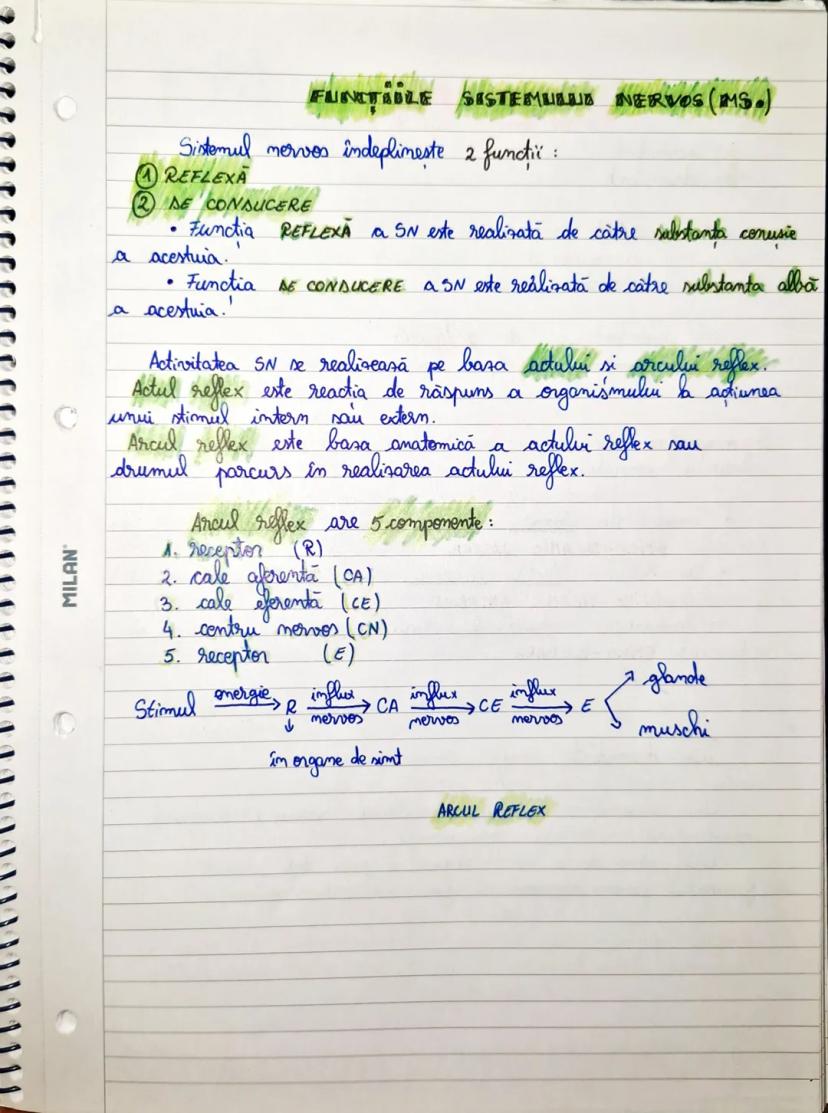 FUNCȚIILE SISTEMULUI NERVOS (MS.)
Sistemul nervos îndeplinește 2 funcții :
① REFLEXĂ
② DE CONDUCERE
• Funcția REFLEXĂ a SN este realizată de către substanța cenușie
a acestuia.
• Functia DE CONDUCERE a SN este realizată de către substanta albă
a acestuia.
Activitatea SN se realizează pe baza actului si arcului reflex.
Actul reflex este reactia de răspuns a organismului la acțiunea
unui stimul intern sau extern.
Arcul reflex este baza anatomică a actului reflex sau
drumul parcurs în realizarea actului reflex.
Arcul reflex are 5 componente :
1. receptor (R)
2. cale aferentă (CA)
3. cale eferentă (CE)
4. centru nervos (CN)
5. receptor (E)
Stimul energie → R influx nervos → CA influx nervos → CE influx nervos → E ↗ glande
↘ muschi
↓
în organe de simt
ARCUL REFLEX
MILAN